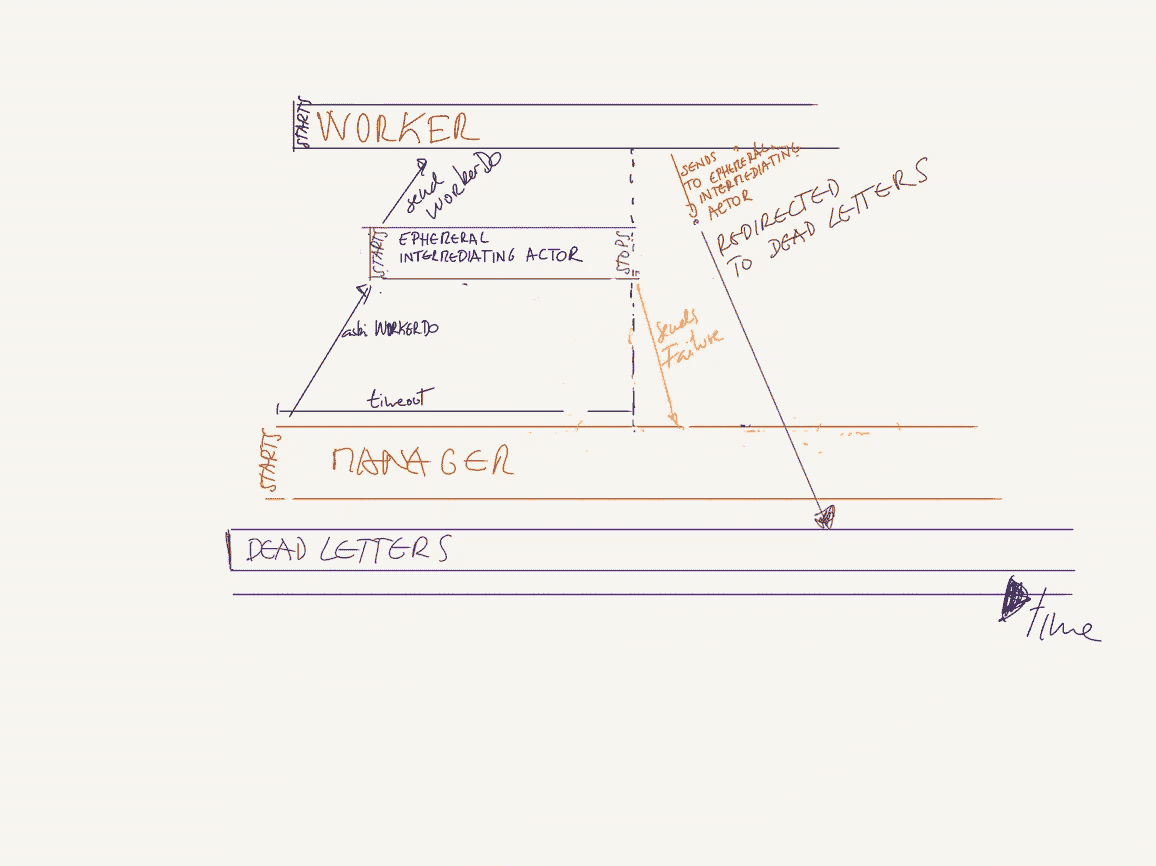 STARTS
WORKER
send
WorkerDo
SENDS
TO EPHEMERAL
INTERMEDIATING
ACTOR
REDIRECTED
TO DEAD LETTERS
STARTS
EPHEMERAL
INTERMEDIATING ACTOR
STOPS
ask WORKERDO
sends
Failure
timeout
STARTS
MANAGER
DEAD LETTERS
time